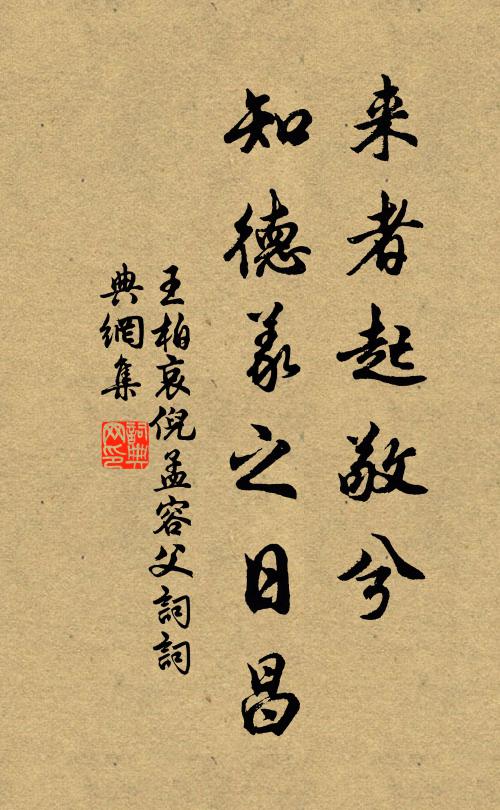 来者起敬兮
知德义之日昌
王柏哀倪孟容父词词
典網集
詞典
网印